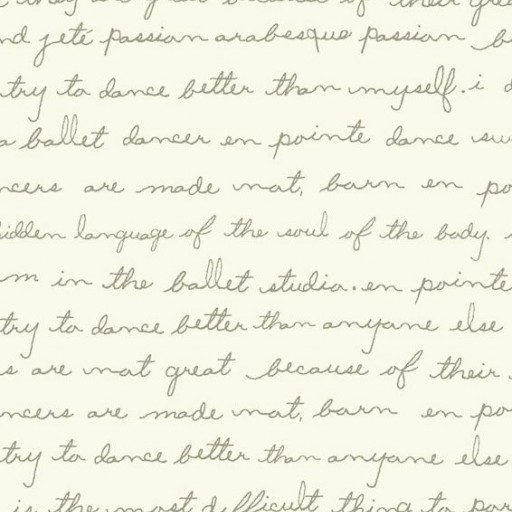 they are great because of their grea
nd jeté passion arabesque passion b
try to dance better than myself. i d
a ballet dancer en pointe dance sw
ncers are made not, born en po
hidden language of the soul of the body.
m in the ballet studio. en pointe
try to dance better than anyone else
s are not great because of their
ncers are made not, born en po
try to dance better than anyone else
is the most difficult thing to por